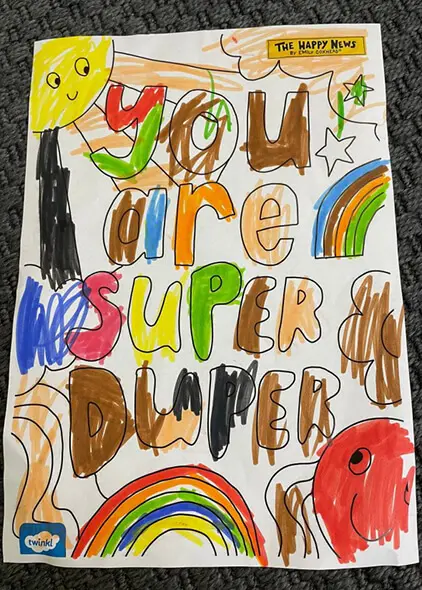 THE HAPPY NEWS
BY EMILY COXHEAD
you
are
SUPER
DUPER
twinkl